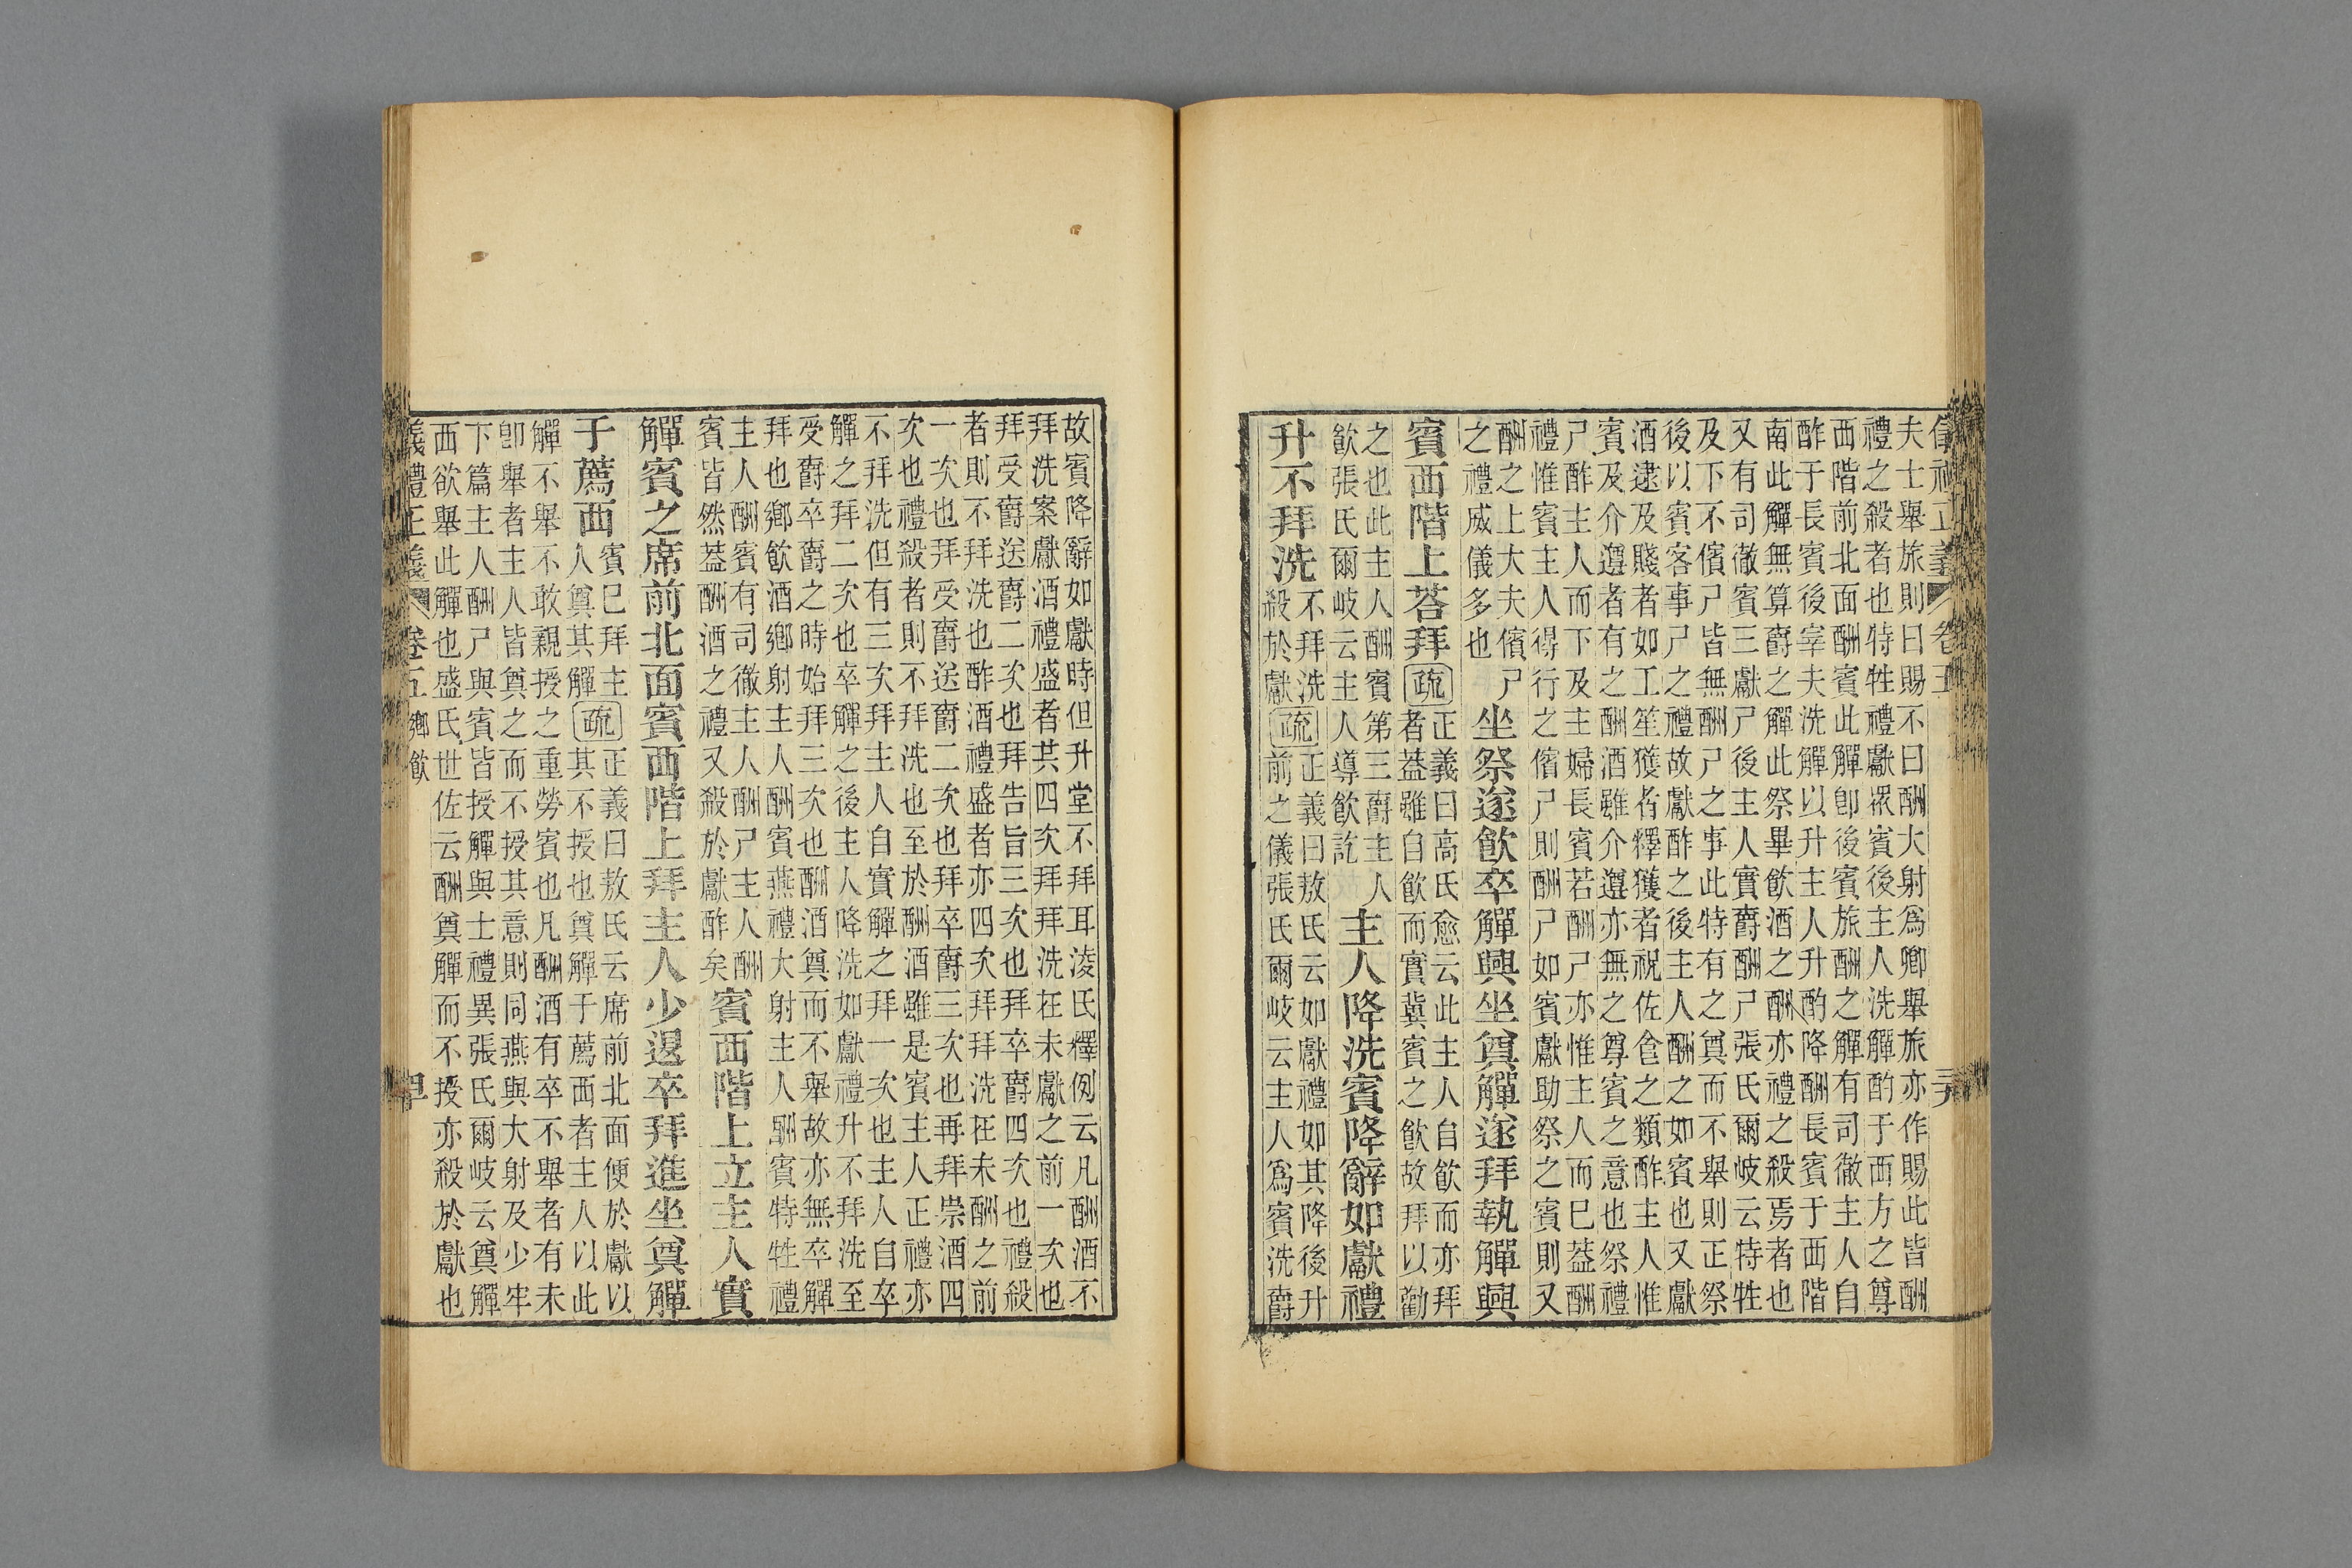 儀禮正義 卷五
夫士舉旅則曰賜不曰酬大射爲卿舉旅亦作賜此皆酬
禮之殺者也特牲禮獻衆賓後主人洗觶酌于西方之尊
西階前北面酬賓此觶卽後賓旅酬之觶有司徹主人自
酢于長賓後宰夫洗觶以升主人升酌降酬長賓于西階
南此觶無算爵之觶此祭畢飲酒之酬亦禮之殺焉者也
又有司徹賓三獻尸後主人實爵酬尸張氏爾岐云特牲
及下不儐尸皆無酬尸之事此特有之奠而不舉則正祭
後以賓客事尸之禮故獻酢之後主人酬之如賓也又獻
酒逮及賤者如工笙獲者釋獲者祝佐食之類酢主人惟
賓及介遵者有之酬酒雖介遵亦無之尊賓之意也祭禮
尸酢主人而下及主婦長賓若酬尸亦惟主人而已蓋酬
禮惟賓主人得行之儐尸則酬尸如賓獻助祭之賓則又
酬之上大夫儐尸
之禮威儀多也
坐祭遂飲卒觶興坐奠觶遂拜執觶興
賓西階上荅拜疏正義曰高氏愈云此主人自飲而亦拜
者蓋雖自飲而實冀賓之飲故拜以勸
之也此主人酬賓第三爵主人
飲張氏爾岐云主人導飲訖
主人降洗賓降辭如獻禮
升不拜洗不拜洗
殺於獻疏正義曰敖氏云如獻禮如其降後升
前之儀張氏爾岐云主人爲賓洗爵
故賓降辭如獻時但升堂不拜耳淩氏釋例云凡酬酒不
拜洗案獻酒禮盛者共四次拜拜洗在未獻之前一次也
拜受爵送爵二次也拜告旨三次也拜卒爵四次也禮殺
者則不拜洗也酢酒禮盛者亦四次拜拜洗在未酬之前
一次也拜受爵送爵二次也拜卒爵三次也再拜崇酒四
次也禮殺者則不拜洗也至於酬酒雖是賓主人正禮亦
不拜洗但有三次拜主人自實觶之拜一次也主人自卒
觶之拜二次也卒觶之後主人降洗如獻禮升不拜洗至
受爵卒爵之時始拜三次也酬酒奠而不舉故亦無卒觶
拜也鄉飲酒鄉射主人酬賓燕禮大射主人酬賓特牲禮
主人酬賓有司徹主人酬尸主人酬
賓皆然蓋酬酒之禮又殺於獻酢矣
賓西階上立主人實
觶賓之席前北面賓西階上拜主人少退卒拜進坐奠觶
于薦西賓已拜主
人奠其觶疏正義曰敖氏云席前北面便於獻以
其不授也奠觶于薦西者主人以此
觶不舉不敢親授之重勞賓也凡酬酒有卒不舉者有未
卽舉者主人皆奠之而不授其意則同燕與大射及少牢
下篇主人酬尸與賓皆授觶與士禮異張氏爾岐云奠觶
西欲舉此觶也盛氏世佐云酬奠觶而不授亦殺於獻也
儀禮正義 卷五 鄉飲